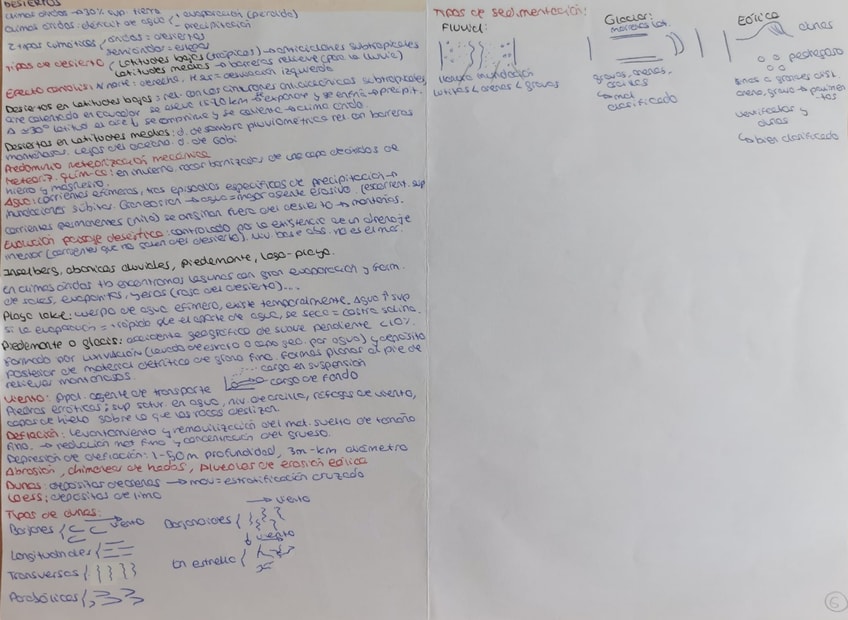 DESIERTOS
climas áridos → 30% sup. tierra
climas áridos: déficit de agua + evaporación (perdida)
- precipitación
2 tipos climáticos áridas = desiertos
semiáridas = estepa
Tipos de desierto Latitudes bajas (trópicos) → anticiclones subtropicales
Latitudes medias → barreras relieve (para la lluvia)
Efecto coriolis: H. norte: derecha, H. sur = desviación izquierda
Desiertos en latitudes bajas: rel. con los cinturones anticiclónicos subtropicales,
aire calentado en ecuador se eleva 15-20 km → expande y se enfría → precipit.
A ≃ 30° latitud el aire ↓ se comprime y se calienta → clima árido.
Desiertos en Latitudes medias: d. de sombra pluviométrica rel. con barreras
montañosas. Lejos del océano: d. de Gobi
Predominio meteorización mecánica
Meteoriz. química: en invierno. rocas barnizadas de una capa de óxidos de
hierro y magnesio.
Agua: corrientes efímeras, tras episodios específicos de precipitación →
inundaciones súbitas. Gran erosión → agua = mayor agente erosivo. (escorrent. sup
corrientes permanentes (nilo) se originan fuera del desierto → montañas.
Evolución paisaje desértico: controlado por la existencia de un drenaje
interior (corrientes que no salen del desierto). Niv. base abs. no es el mar.
Inselberg, abanicos aluviales, piedemonte, lago-playa.
en climas áridos tb encontramos lagunas con gran evaporación y form.
de sales, evaporitas, yesos (rosa del desierto)....
Playa lake: cuerpo de agua efímero, existe temporalmente. Agua ↑ sup
si la evaporación = + rápido que el aporte de agua, se seca = costra salina.
Piedemonte o glacis: accidente geográfico de suave pendiente <10%.
Formado por lixiviación (lavado de estrato o capa geo. por agua) y depósito
posterior de material detrítico de grano fino. Formas planas al pie de
relieves montañosos.
carga en suspensión
Viento: ppal. agente de transporte
carga de fondo
Piedras erráticas: sup satur. en agua, niv. de arcilla, ráfagas de viento,
capas de hielo sobre la que las rocas deslizan.
Deflación: levantamiento y removilización del mat. suelto de tamaño
fino. → reducción mat fino y concentración del grueso.
Depresión de deflación: 1-50m profundidad, 3m-km diámetro
Abrasión, chimenea de hadas, Alveolos de erosión eólica
Dunas: depósitos de arenas → mov = estratificación cruzada
Loess: depósitos de limo
Tipos de dunas:
Barjanes viento
Barjanoides viento
Longitudinales
En estrella viento
Transversas
Parabólicas
Tipos de sedimentación:
FLUVIAL:
llanura inundación
lutitas < arenas < gravas
Glaciar:
morrenas lat.
gravas, arenas,
arcillas
↳ mal
clasificado
EÓLICA
dunas
pedregoso
ventifactos y
dunas
↳ bien clasificado
6